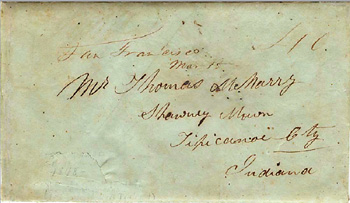 San Francisco
Mar
Mr Thomas McMarry
Shawney Muon
Tipicanoi City
Indiana